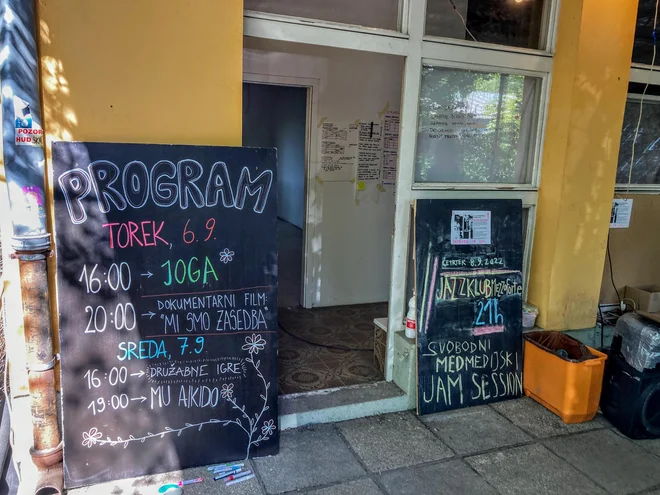 POZOR
HUD
PROGRAM
TOREK, 6.9.
16:00 → JOGA
20:00 → DOKUMENTARNI FILM:
"MI SMO ZASEDBA"
SREDA, 7.9.
16:00 → DRUŽABNE IGRE
19:00 → MU AIKIDO
ČETRTEK 8.9.2022
JAZZ KLUB MEZZOFORTE
21h
SVOBODNI
MEDMEDIJSKI
JAM SESSION